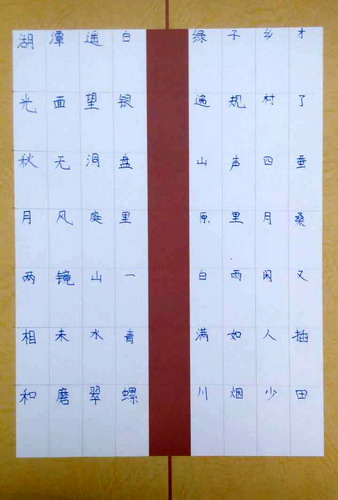 湖光秋月两相和
潭面无风镜未磨
遥望洞庭山水翠
白银盘里一青螺
绿遍山原白满川
子规声里雨如烟
乡村四月闲人少
才了蚕桑又插田